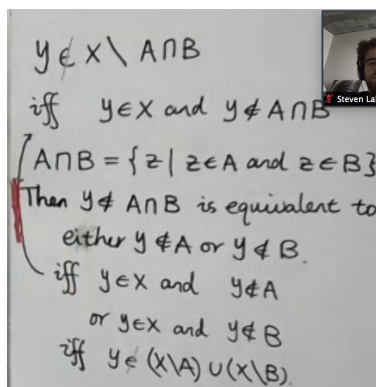 y ∉ X \ A∩B
iff y∈X and y∉A∩B
Steven La
A∩B = {z | z∈A and z∈B}
Then y∉A∩B is equivalent to
either y∉A or y∉B.
iff y∈X and y∉A
or y∈X and y∉B
iff y∈(X\A)∪(X\B).